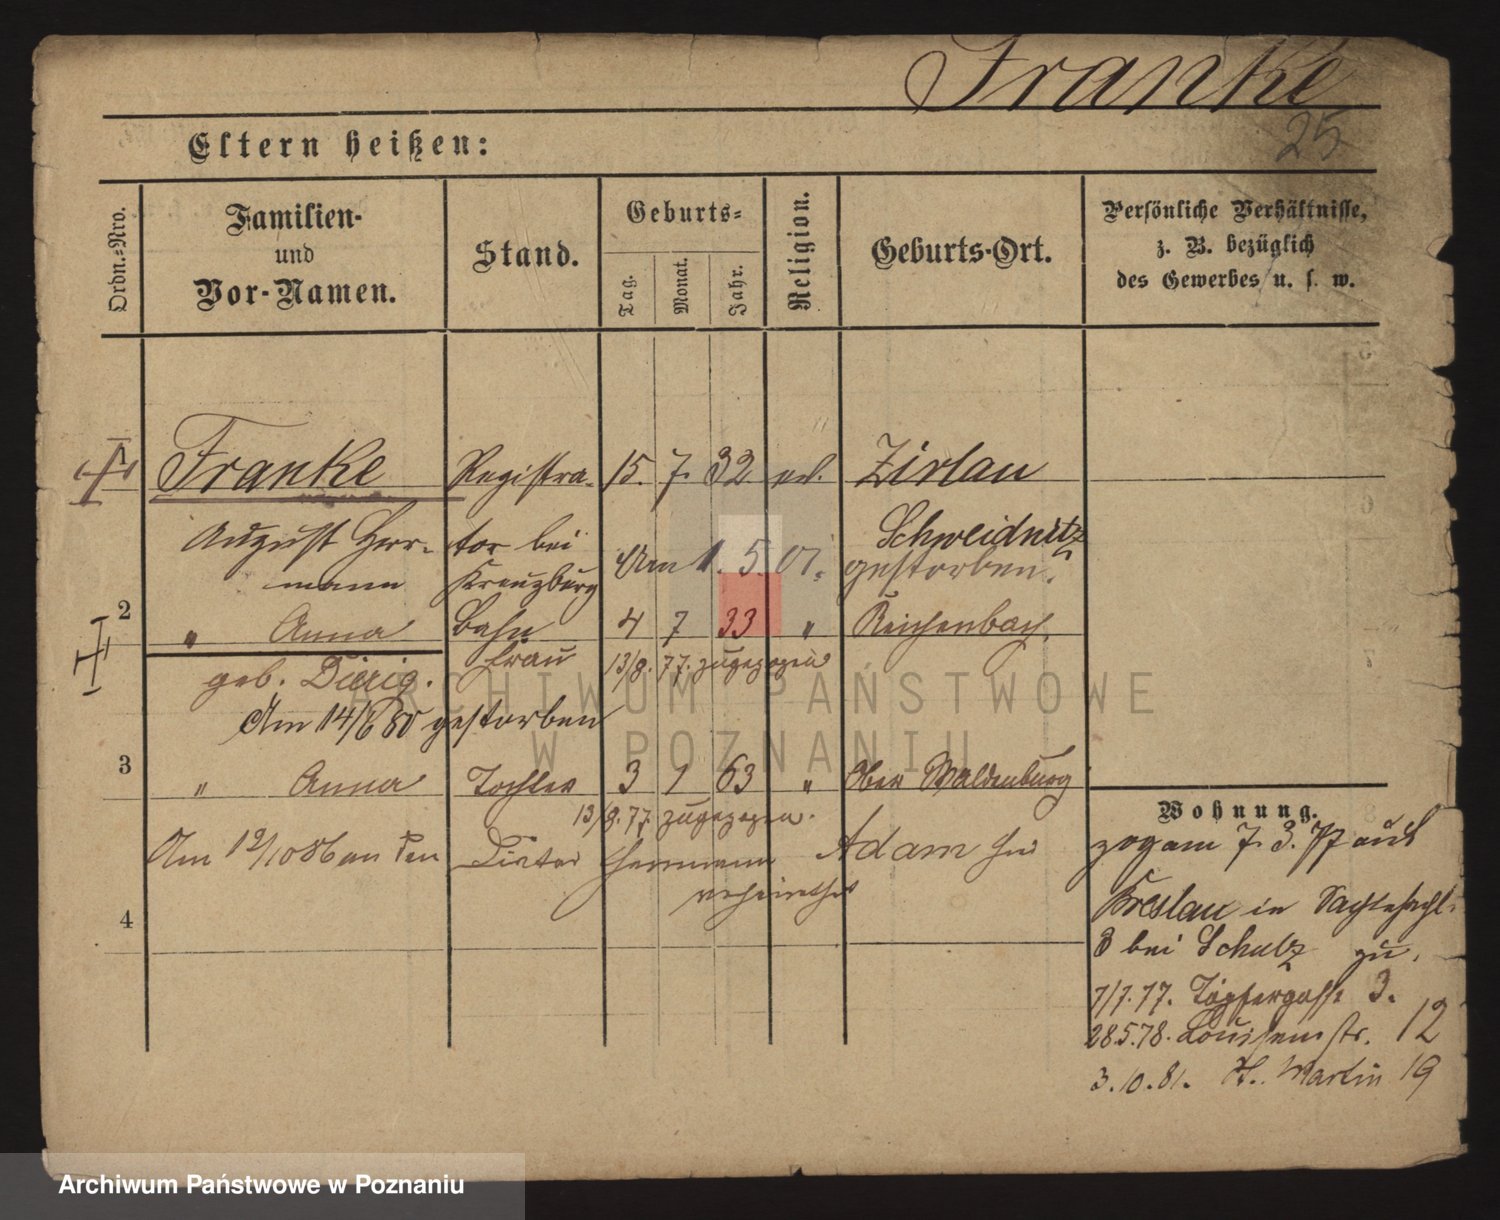 Franke
25
Eltern heißen:
Ordn.-Nro.
Familien-
und
Vor-Namen.
Stand.
Geburts-
Tag.
Monat.
Jahr.
Religion.
Geburts-Ort.
Persönliche Verhältnisse,
z. B. bezüglich
des Gewerbes u. s. w.
Franke Registra- 15. 7. 32 Zirlau
August Herr- tor bei Schweidnitz
mann Kreuzburg Am 1. 5. 01. gestorben.
2 " Anna Bahn 4 7 33 " Reichenbach.
geb. Dierig. Frau 13/8. 77. zugezogen
Am 14/6 80 gestorben
3 " Anna Tochter 3 1 63 " Ober Waldenburg
13/8. 77. zugezogen.
Am 12/10 86 an den Herrmann Adam
verheirathet
4
Wohnung.
zog am 7. 3. 77 aus
Breslau in
3 bei Schulz zu.
7/7. 77. Töpfergasse 3.
28.5.78. Louisenstr. 12
3. 10. 81. St. Martin 19
ARCHIWUM PAŃSTWOWE
W POZNANIU
Archiwum Państwowe w Poznaniu